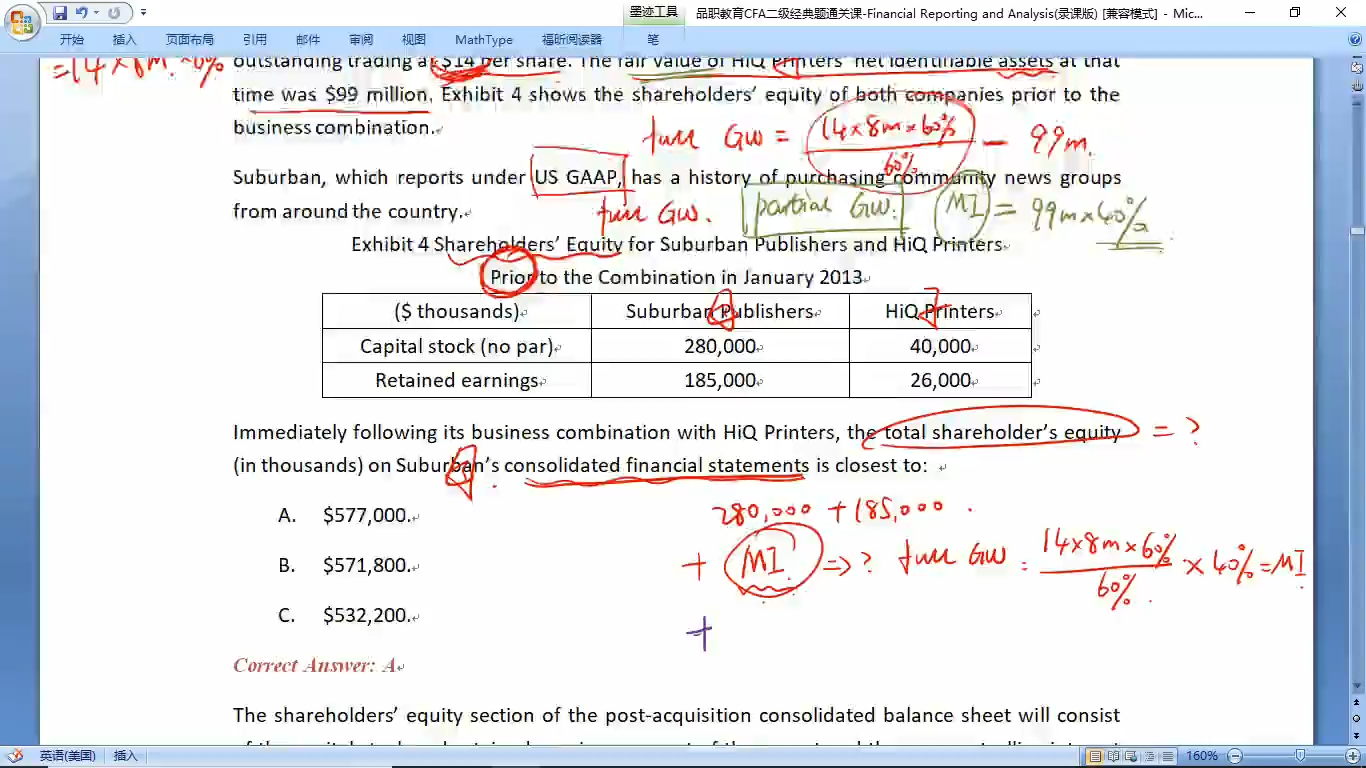 墨迹工具
品职教育CFA二级经典题通关课-Financial Reporting and Analysis(录课版) [兼容模式] - Mic...
开始 插入 页面布局 引用 邮件 审阅 视图 MathType 福昕阅读器 笔
=14×8m×60%
outstanding trading at $14 per share. The fair value of HiQ Printers' net identifiable assets at that
time was $99 million. Exhibit 4 shows the shareholders' equity of both companies prior to the
business combination.
full GW = 14×8m×60% / 60% - 99m.
Suburban, which reports under US GAAP, has a history of purchasing community news groups
from around the country.
full GW. partial GW. MI = 99m×40%
Exhibit 4 Shareholders' Equity for Suburban Publishers and HiQ Printers
Prior to the Combination in January 2013
($ thousands) Suburban Publishers HiQ Printers
Capital stock (no par) 280,000 40,000
Retained earnings 185,000 26,000
Immediately following its business combination with HiQ Printers, the total shareholder's equity = ?
(in thousands) on Suburban's consolidated financial statements is closest to:
A. $577,000.
280,000 + 185,000.
B. $571,800.
+ MI => ? full GW: 14×8m×60% / 60% × 40% = MI
C. $532,200.
+
Correct Answer: A
The shareholders' equity section of the post-acquisition consolidated balance sheet will consist
英语(美国) 插入 160%